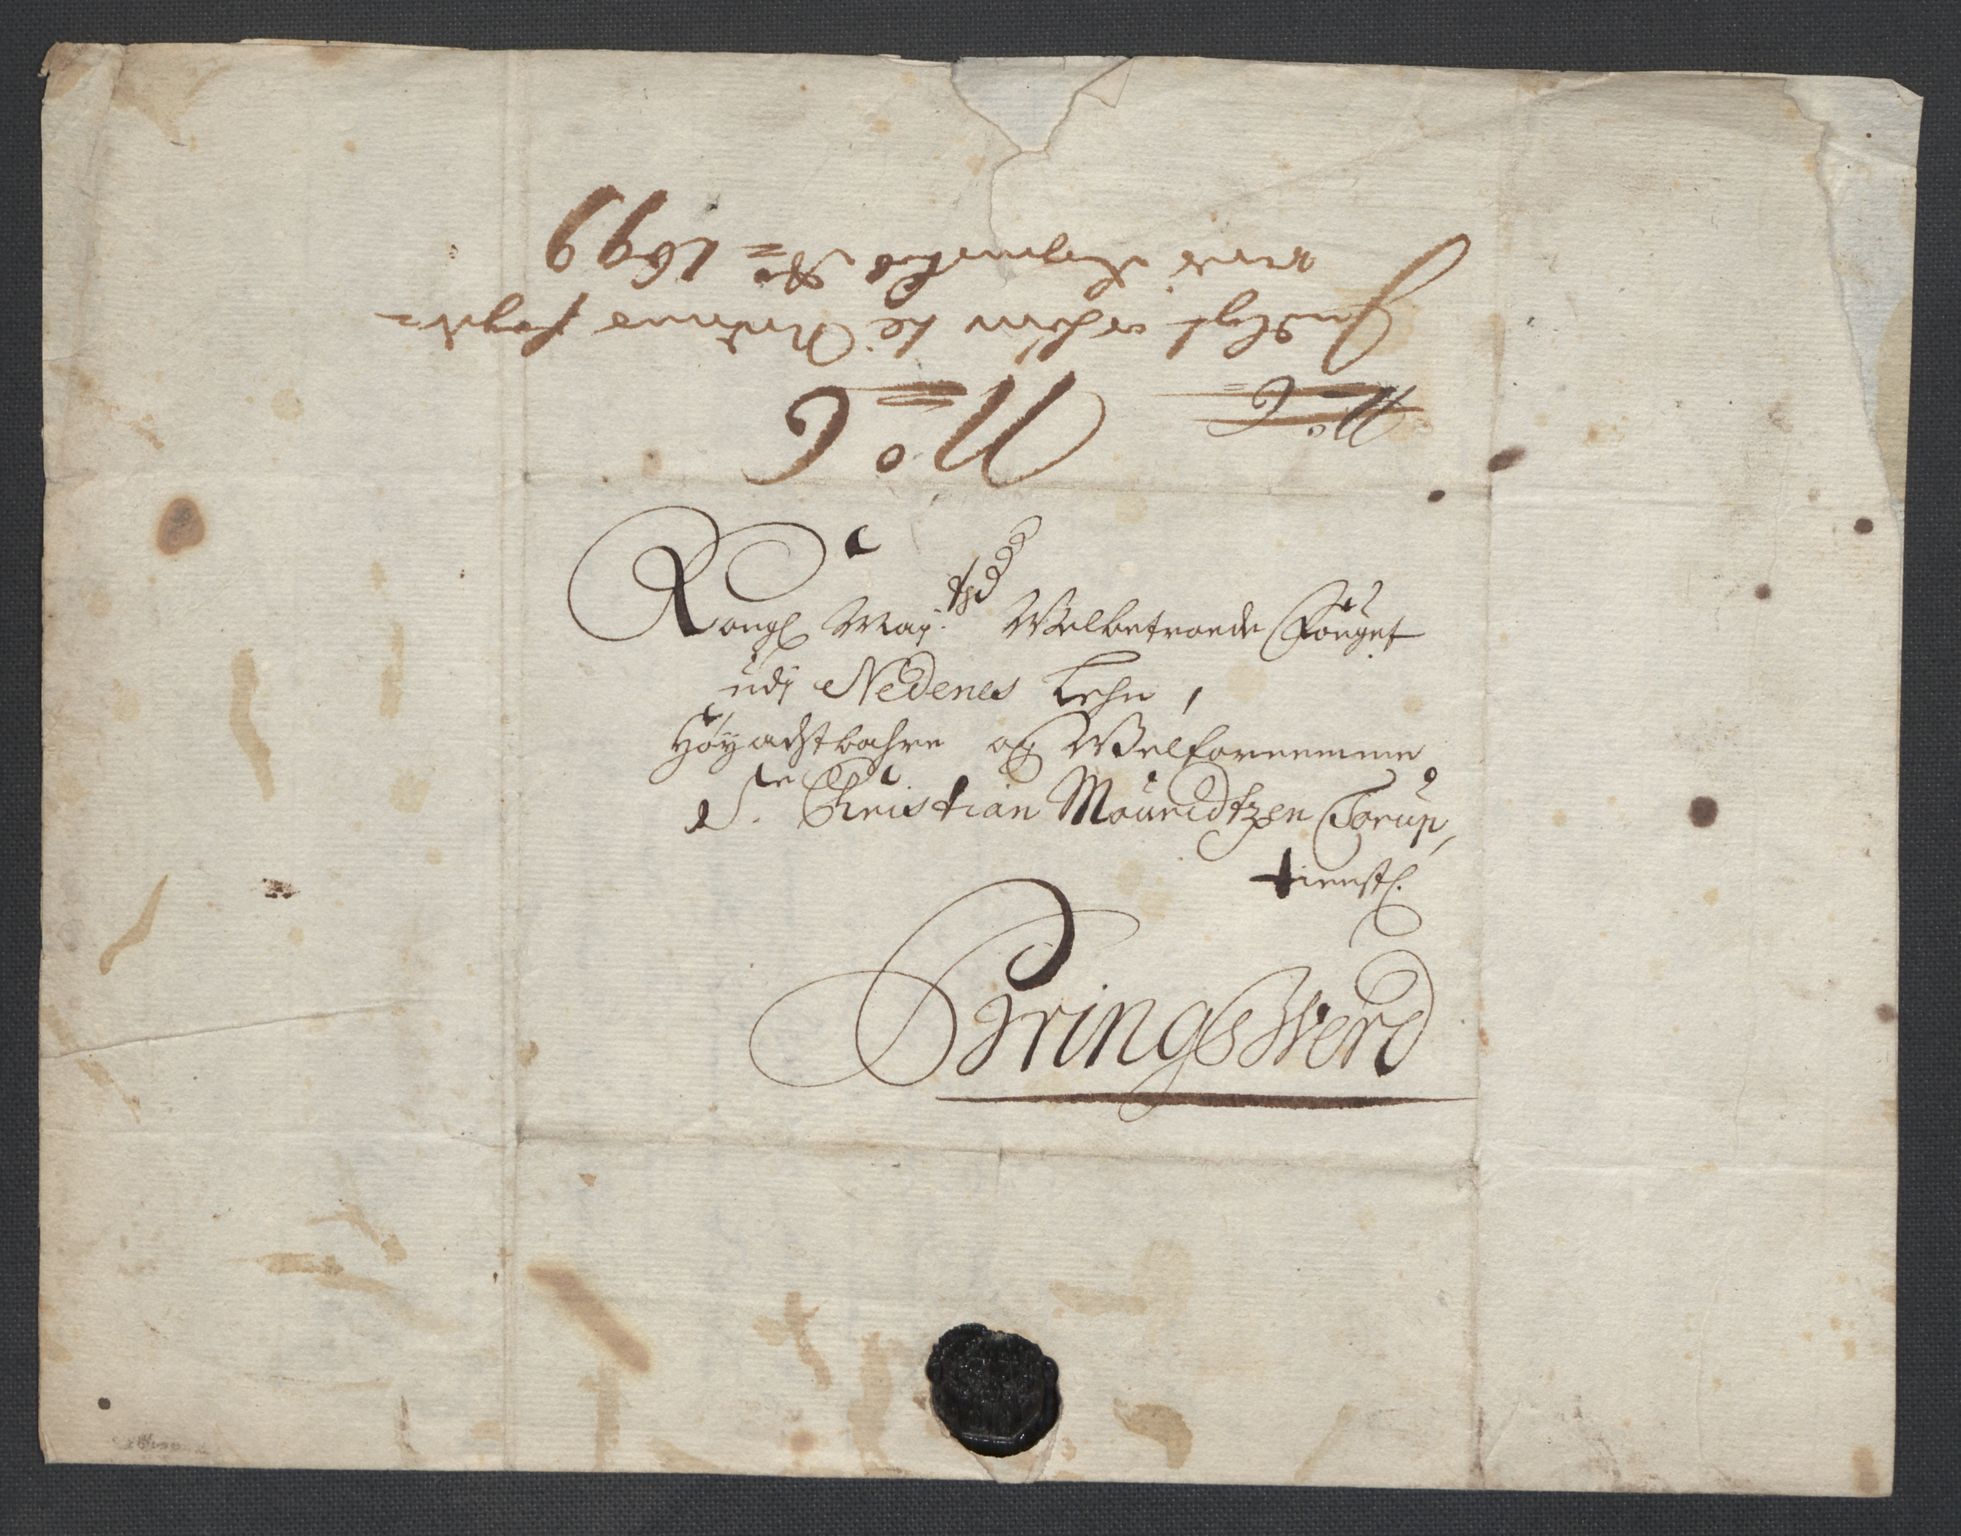 No 6
No 6
til Nedenes fogderi
Ao 1699
Kongl Maytz Welbetroede Fouget
udj Nedenes Lehn,
Höyachtbahre og Welfornemme
Sr. Christian Mouridtzen Torup,
tienstl.
BringsWerd